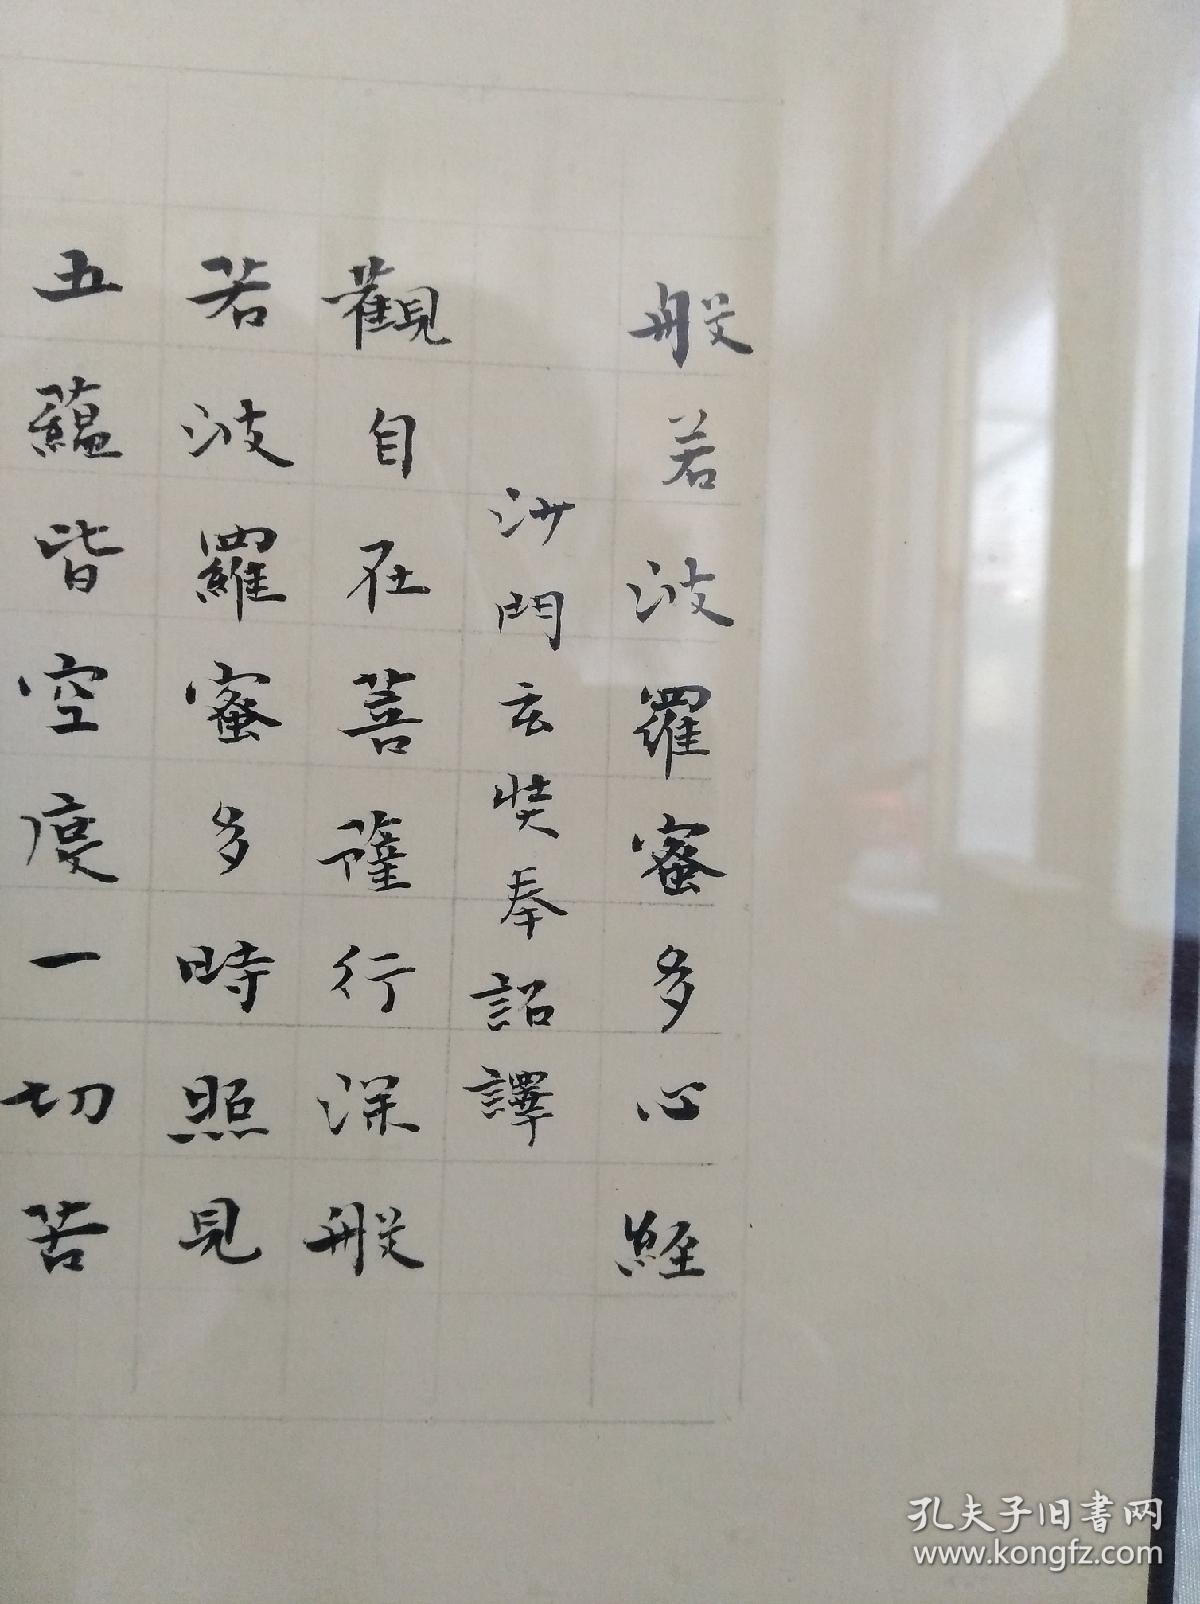 般若波羅蜜多心經
沙門玄奘奉詔譯
觀自在菩薩行深般
若波羅蜜多時照見
五蘊皆空度一切苦
孔夫子旧书网
www.kongfz.com